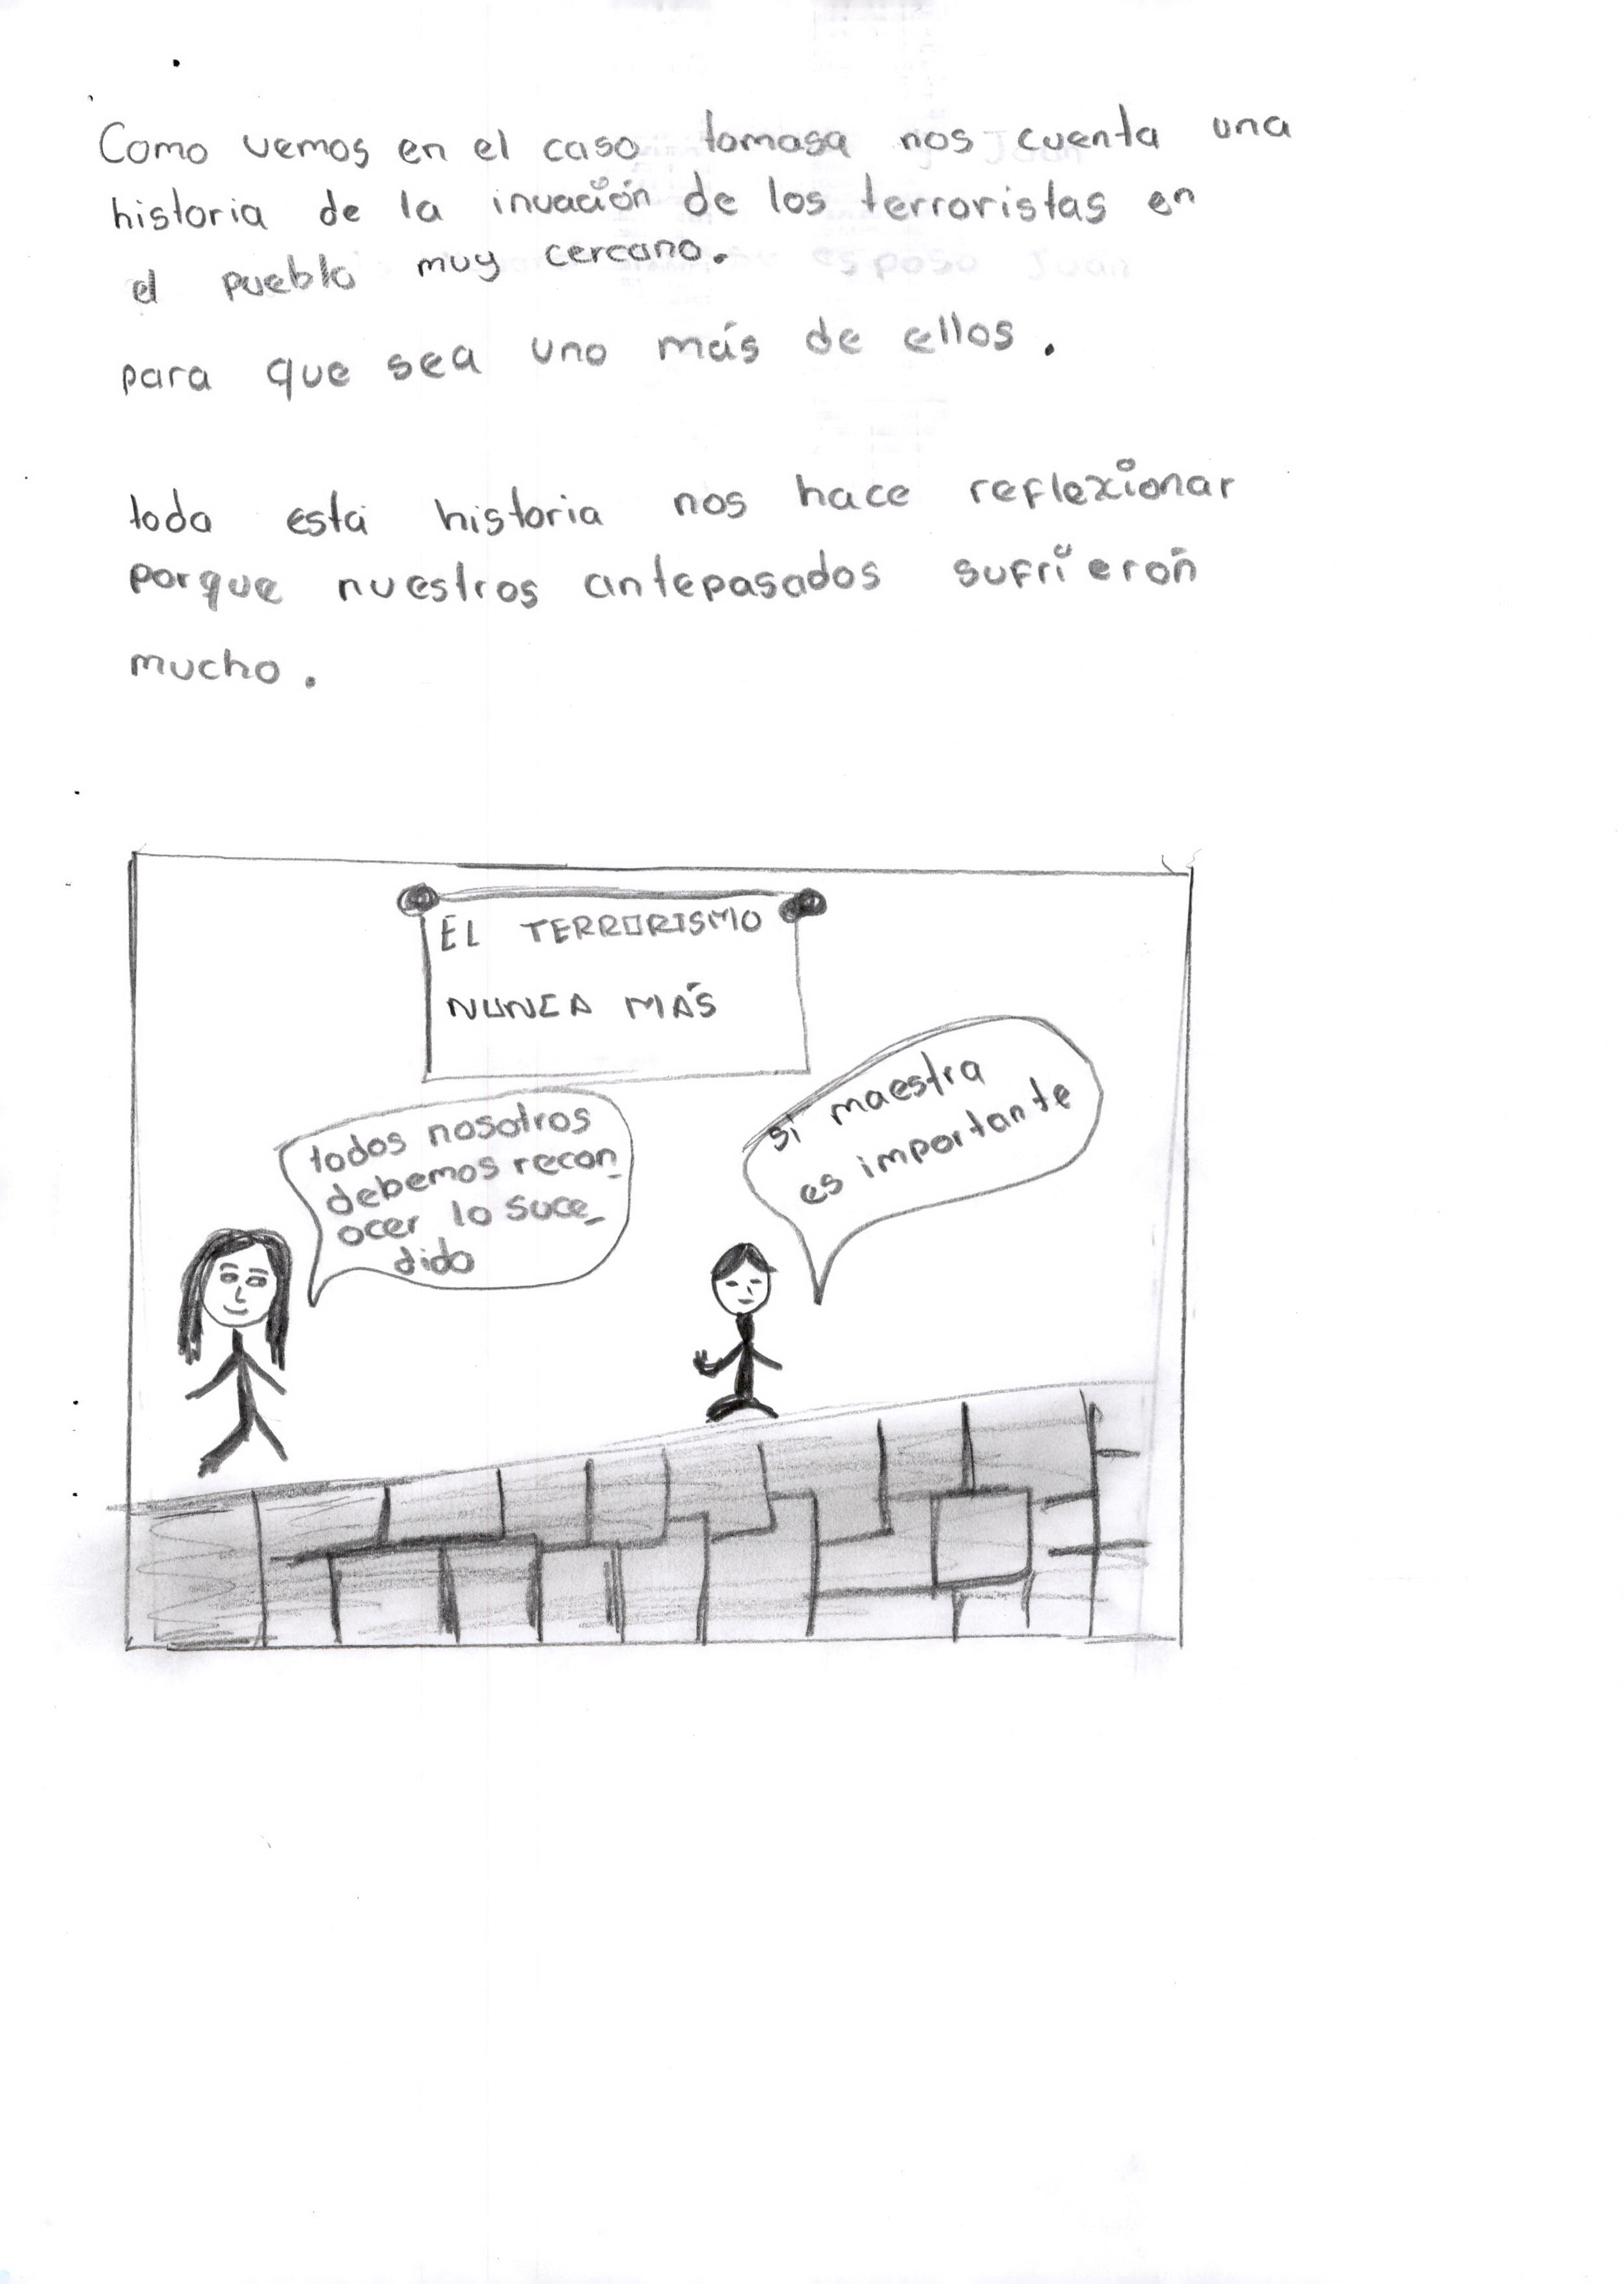 Como vemos en el caso tomasa nos cuenta una
historia de la invación de los terroristas en
el pueblo muy cercano.
para que sea uno más de ellos.
toda está historia nos hace reflexionar
porque nuestros antepasados sufrierón
mucho.
EL TERRORISMO
NUNCA MÁS
todos nosotros
debemos recon_
ocer lo suce_
dido
si maestra
es importante
esposo Juan